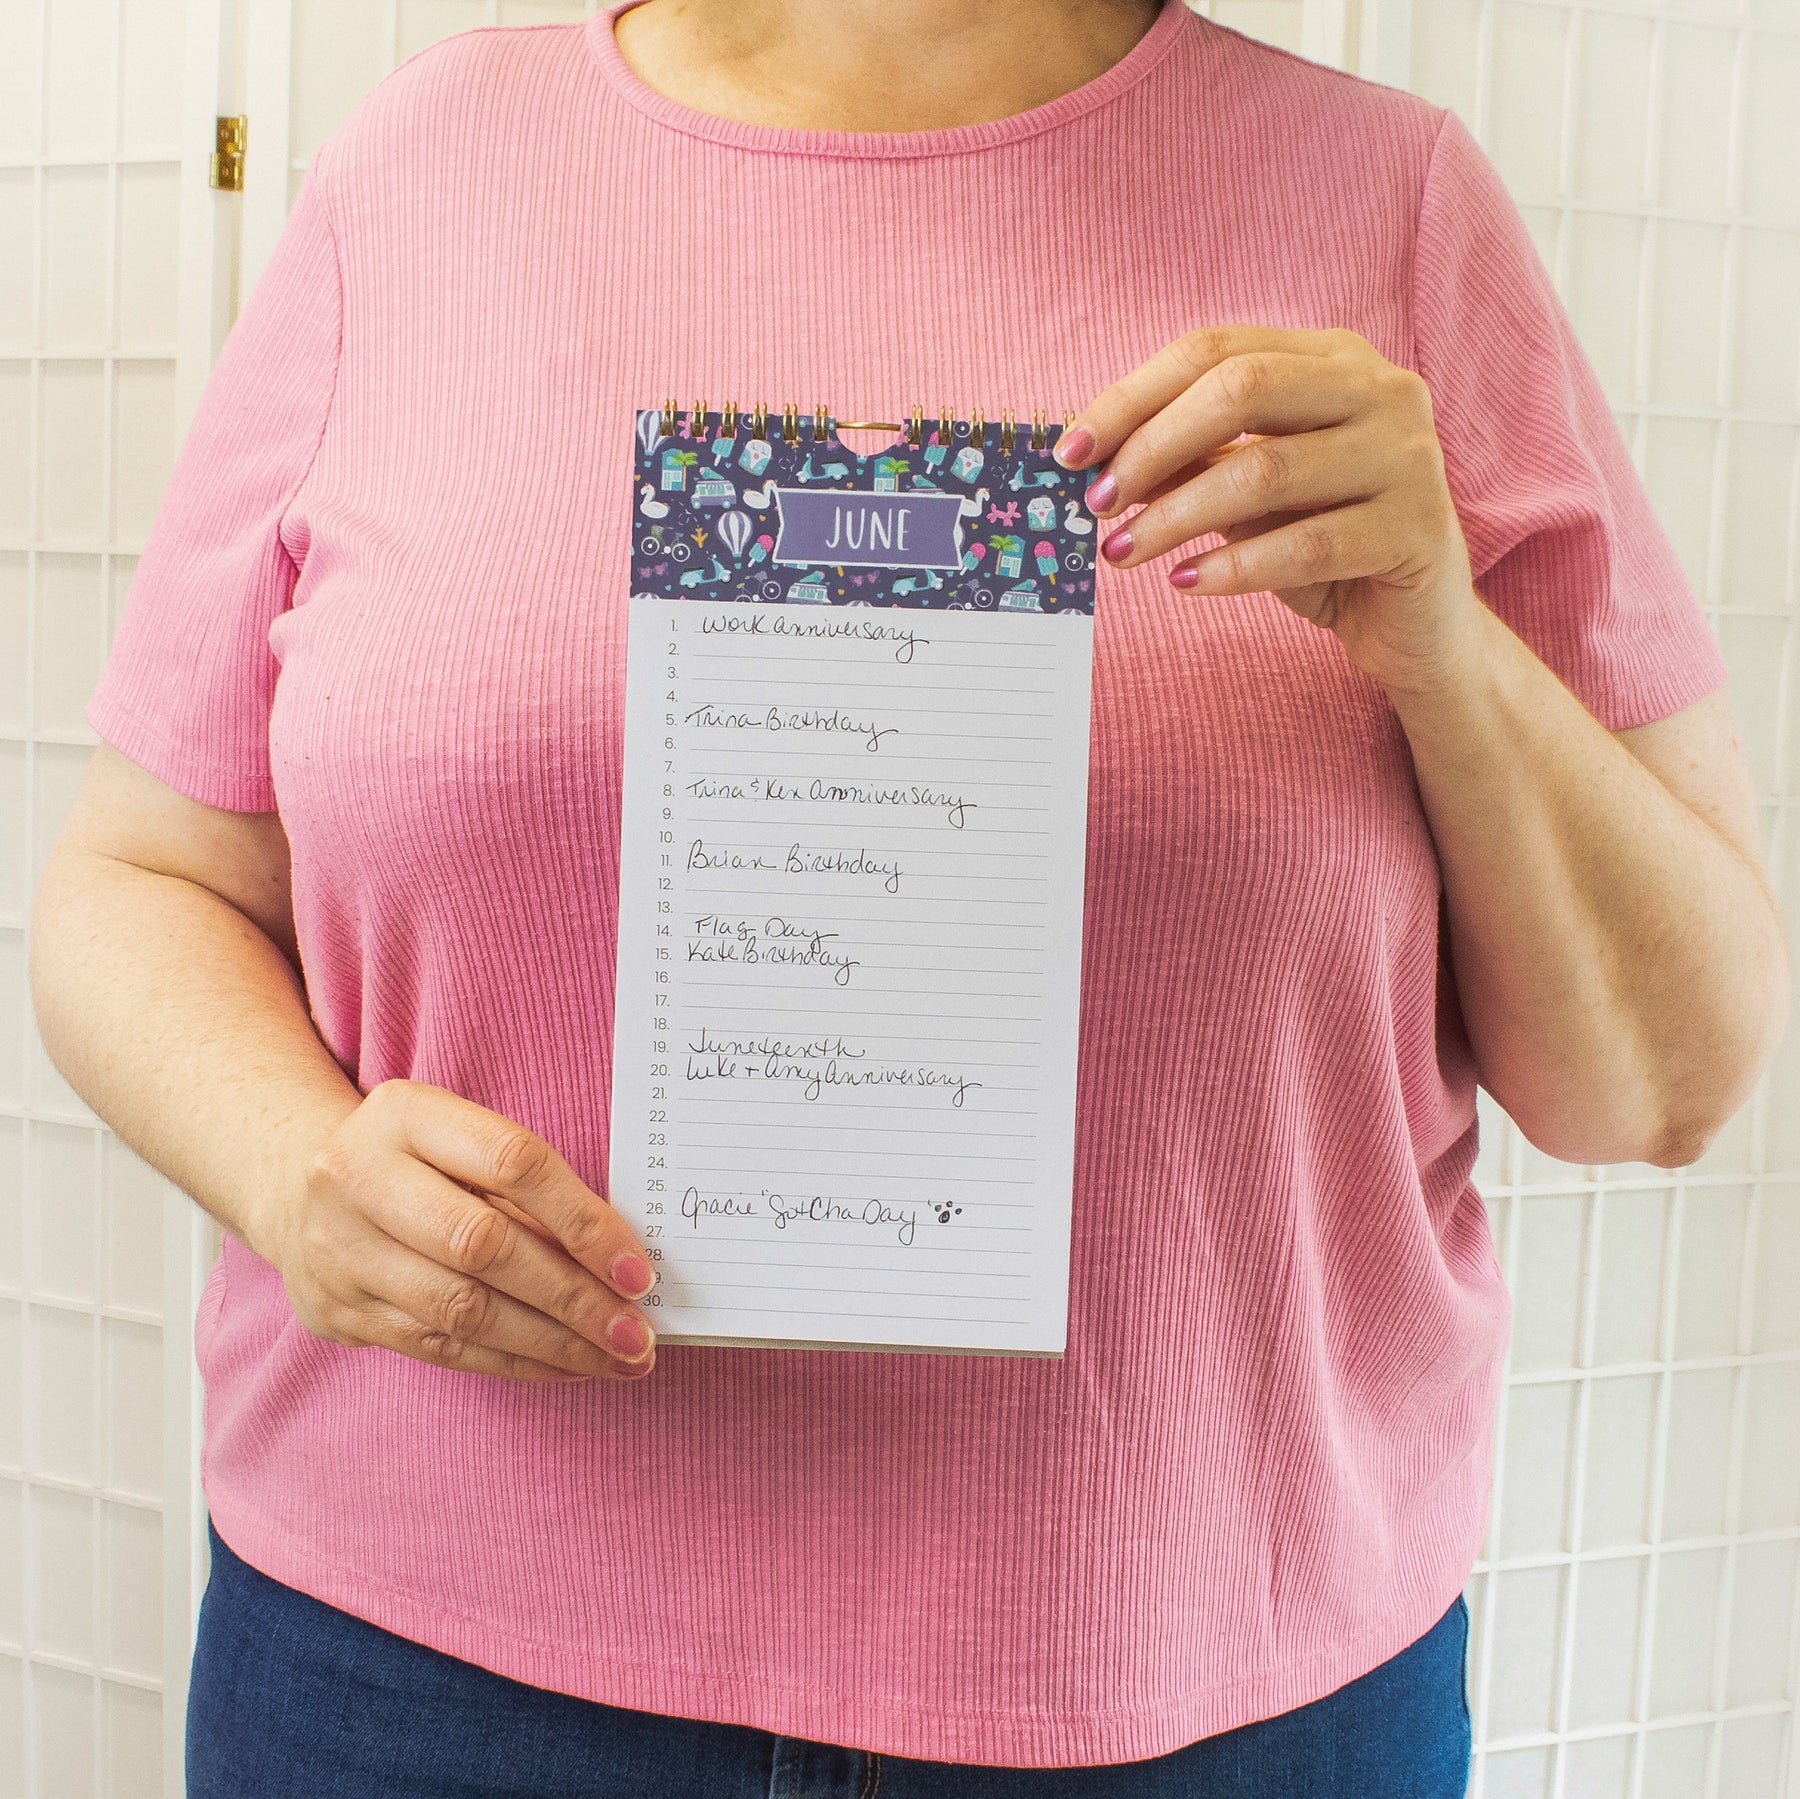 JUNE
1. Work anniversary
2.
3.
4.
5. Trina Birthday
6.
7.
8. Trina & Ken Anniversary
9.
10.
11. Brian Birthday
12.
13.
14. Flag Day
15. Kate Birthday
16.
17.
18.
19. Juneteenth
20. Luke + Amy Anniversary
21.
22.
23.
24.
25.
26. Gracie "GotCha Day"
27.
28.
9.
30.